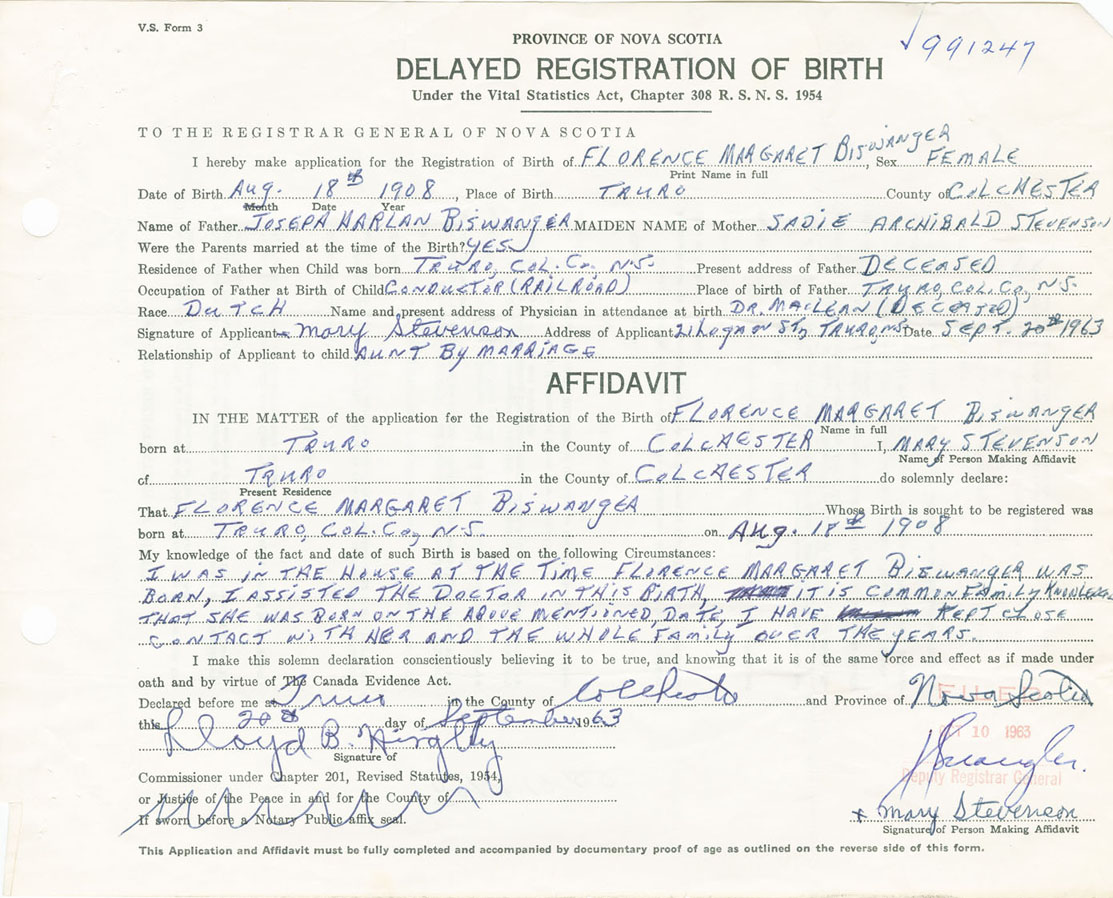 V.S. Form 3
991247
PROVINCE OF NOVA SCOTIA
DELAYED REGISTRATION OF BIRTH
Under the Vital Statistics Act, Chapter 308 R. S. N. S. 1954
TO THE REGISTRAR GENERAL OF NOVA SCOTIA
I hereby make application for the Registration of Birth of FLORENCE MARGARET BISWANGER, Sex FEMALE
Print Name in full
Date of Birth Aug. 18th 1908, Place of Birth TRURO County of COLCHESTER
Month Date Year
Name of Father JOSEPH HARLAN BISWANGER MAIDEN NAME of Mother SADIE ARCHIBALD STEVENSON
Were the Parents married at the time of the Birth? YES
Residence of Father when Child was born TRURO, COL. CO, N.S. Present address of Father DECEASED
Occupation of Father at Birth of Child CONDUCTOR (RAILROAD) Place of birth of Father TRURO, COL. CO, N.S.
Race DUTCH Name and present address of Physician in attendance at birth DR. MACLEAN (DECEASED)
Signature of Applicant x Mary Stevenson Address of Applicant 21 Logan St, TRURO, NS Date SEPT. 20th 1963
Relationship of Applicant to child AUNT BY MARRIAGE
AFFIDAVIT
IN THE MATTER of the application for the Registration of the Birth of FLORENCE MARGARET BISWANGER
Name in full
born at TRURO in the County of COLCHESTER I, MARY STEVENSON
Name of Person Making Affidavit
of TRURO in the County of COLCHESTER do solemnly declare:
Present Residence
That FLORENCE MARGARET BISWANGER Whose Birth is sought to be registered was
born at TRURO, COL. CO, N.S. on Aug. 18th 1908
My knowledge of the fact and date of such Birth is based on the following Circumstances:
I WAS IN THE HOUSE AT THE TIME FLORENCE MARGARET BISWANGER WAS
BORN, I ASSISTED THE DOCTOR IN THIS BIRTH, IT IS COMMON FAMILY KNOWLEDGE
THAT SHE WAS BORN ON THE ABOVE MENTIONED, DATE, I HAVE KEPT CLOSE
CONTACT WITH HER AND THE WHOLE FAMILY OVER THE YEARS.
I make this solemn declaration conscientiously believing it to be true, and knowing that it is of the same force and effect as if made under
oath and by virtue of The Canada Evidence Act.
Declared before me at Truro in the County of Colchester and Province of Nova Scotia
this 20th day of September 1963
Lloyd B.
10 1963
Signature of
Commissioner under Chapter 201, Revised Statutes, 1954,
Deputy Registrar General
or Justice of the Peace in and for the County of
If sworn before a Notary Public affix seal.
x Mary Stevenson
Signature of Person Making Affidavit
This Application and Affidavit must be fully completed and accompanied by documentary proof of age as outlined on the reverse side of this form.